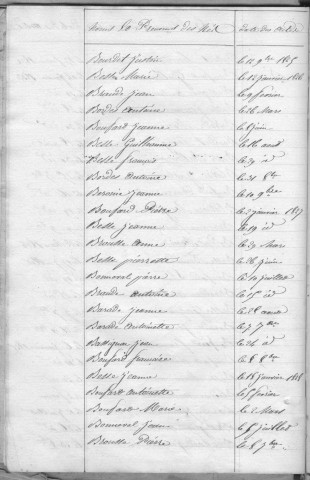 Noms et Prénoms des Nés Date des Actes
Bourdet Justin le 12 9bre 1825
Besse Marie le 15 janvier 1826
Brande Jean le 9 février
Bordes Antoine le 26 Mars
Boufard Jeanne le 8 juin
Besse Guilhaumine le 16 aout
Besse francois le 29 id
Bordes antoine le 21 8bre
jeanne le 10 9bre
Boufard Pierre le 7 janvier 1827
Besse jeanne le 19 id
Brousse anne le 29 Mars
Besse pierrette le 26 juin
Bonneval pierre le 10 juillet
Brande antoine le 15 id
Barade jeanne le 28 aout
Barade Antoinette le 7 7bre
jean le 26 id
Boufard francoise le 8 8bre
Besse jeanne le 18 janvier 1828
Boufard antoinette le 5 février
Boufard Marie le 2 Mars
Bonneval jean le 8 juillet
Brousse Pierre le 8 7bre